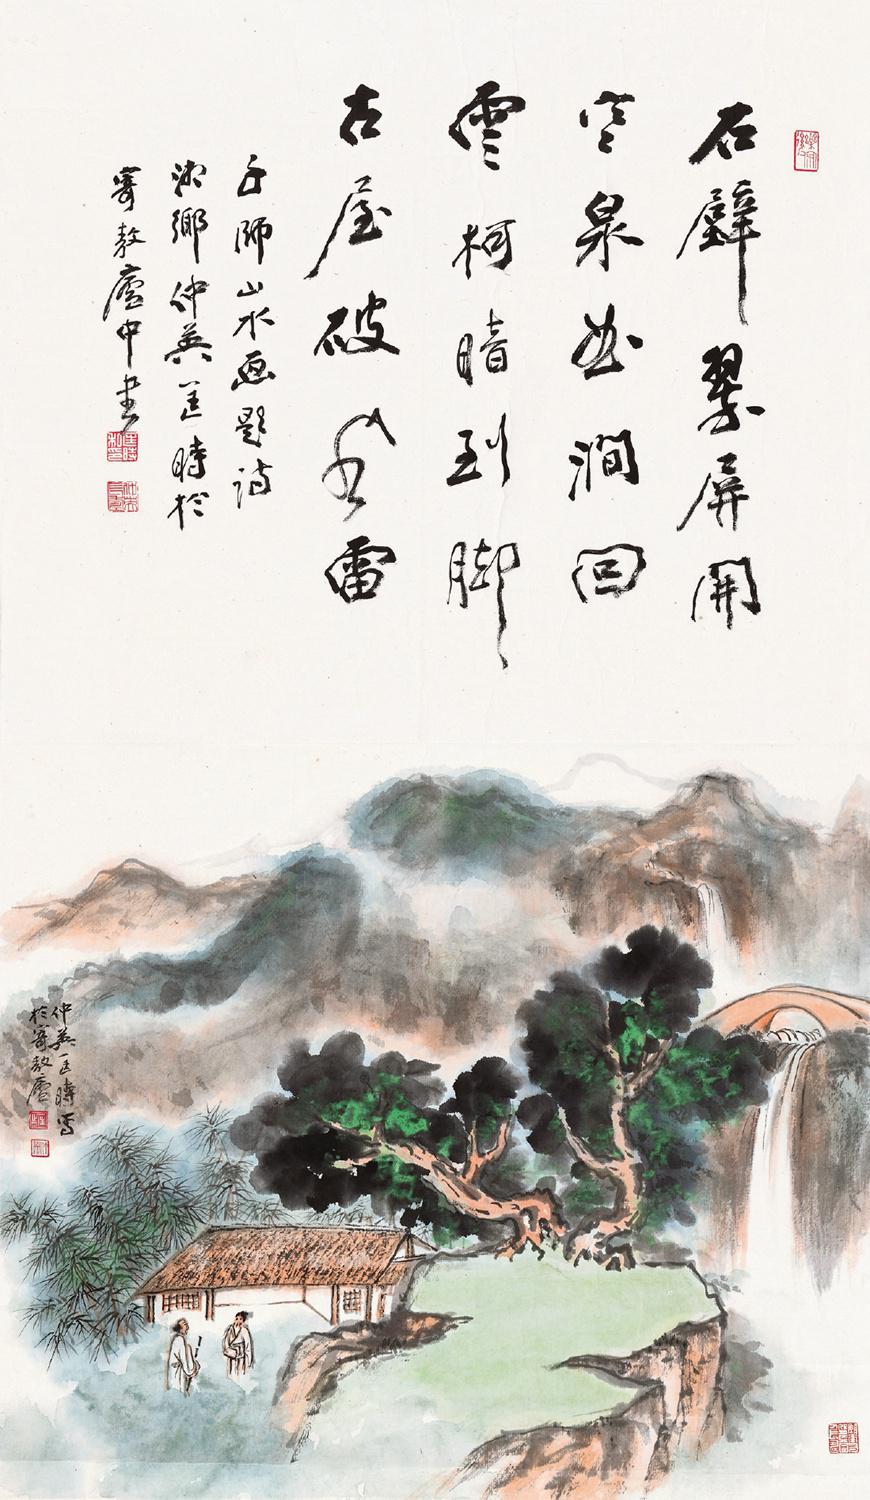 石壁翠屏開
空泉出澗回
雲柯暗到脚
古屋破風雷
子師山水画題詩
湘鄉仲英匡時於
寄敖廬中書
仲英匡時寫
於寄敖廬